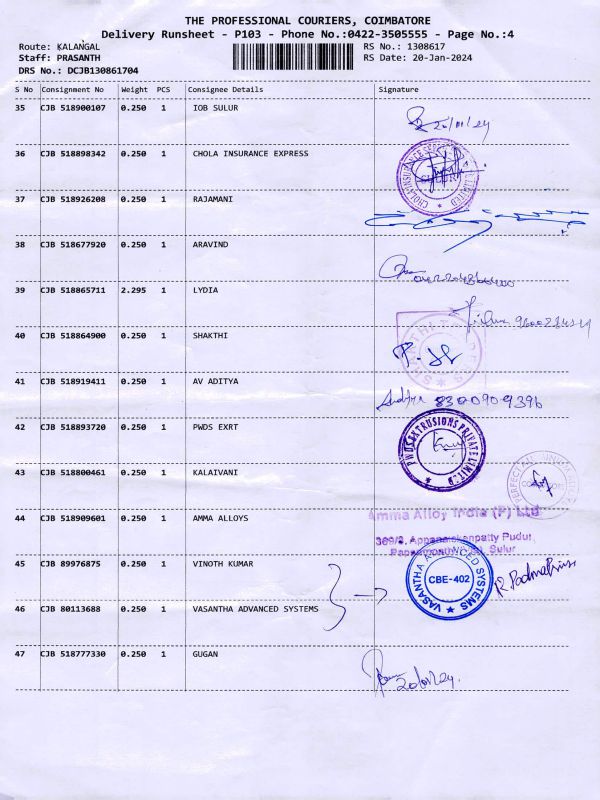 THE PROFESSIONAL COURIERS, COIMBATORE
Delivery Runsheet - P103 - Phone No.:0422-3505555 - Page No.:4
Route: KALANGAL RS No.: 1308617
Staff: PRASANTH RS Date: 20-Jan-2024
DRS No.: DCJB130861704
S No Consignment No Weight PCS Consignee Details Signature
35 CJB 518900107 0.250 1 IOB SULUR
36 CJB 518898342 0.250 1 CHOLA INSURANCE EXPRESS
37 CJB 518926208 0.250 1 RAJAMANI
38 CJB 518677920 0.250 1 ARAVIND
39 CJB 518865711 2.295 1 LYDIA
40 CJB 518864900 0.250 1 SHAKTHI
41 CJB 518919411 0.250 1 AV ADITYA 8300909396
42 CJB 518893720 0.250 1 PWDS EXRT PWDS EXTRUSIONS PRIVATE LIMITED
43 CJB 518800461 0.250 1 KALAIVANI
44 CJB 518909601 0.250 1 AMMA ALLOYS Amma Alloy India (P) Ltd
Sulur
45 CJB 89976875 0.250 1 VINOTH KUMAR
VASANTHA ADVANCED SYSTEMS
CBE-402
R. Padma
46 CJB 80113688 0.250 1 VASANTHA ADVANCED SYSTEMS
47 CJB 518777330 0.250 1 GUGAN
20/01/24.